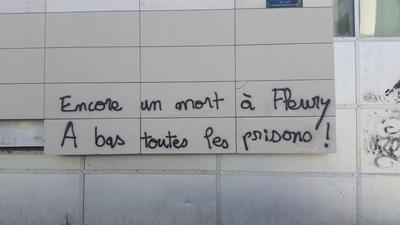 Encore un mort à Fleury
A bas toutes les prisons !